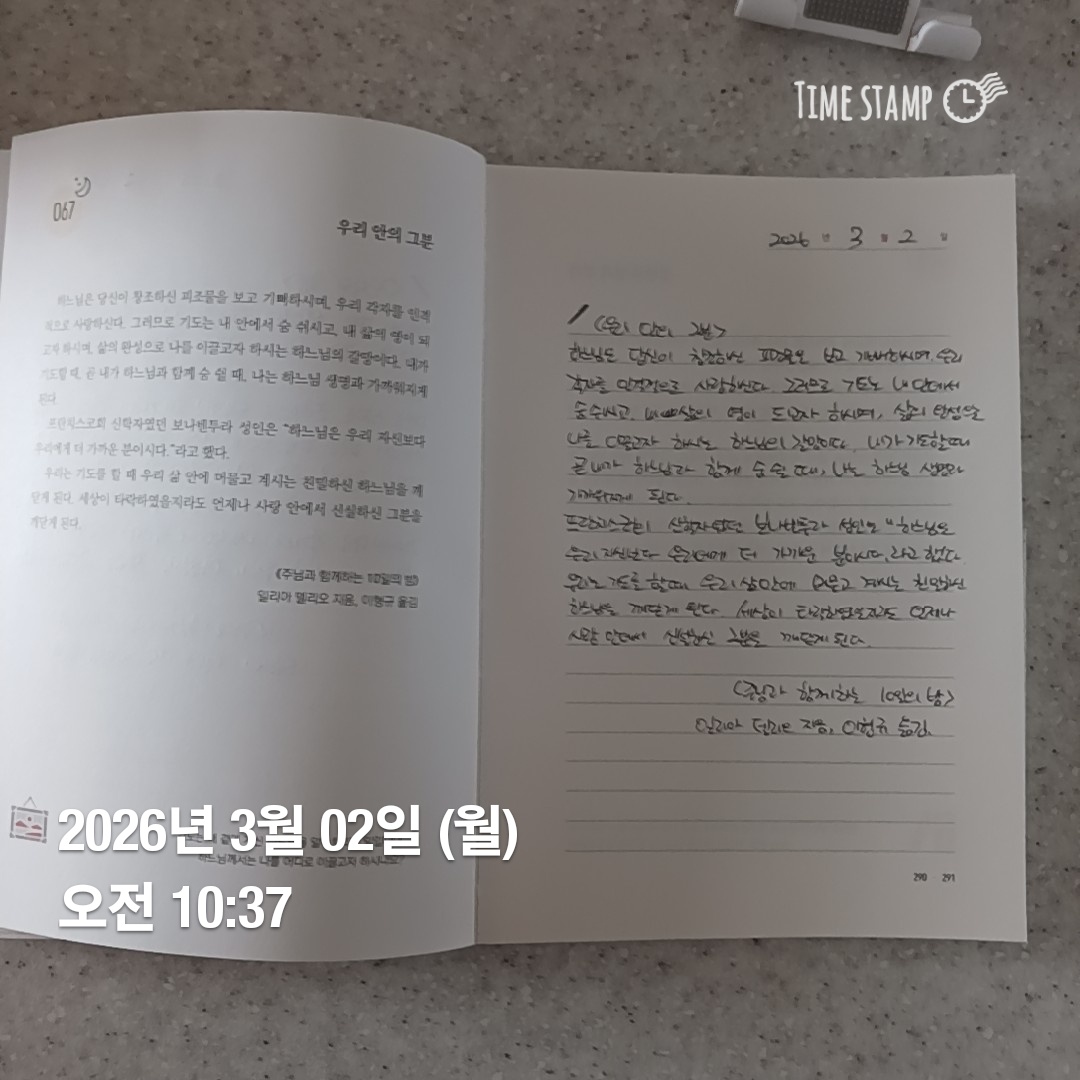 TIME STAMP
067
우리 안의 그분
하느님은 당신이 창조하신 피조물을 보고 기뻐하시며, 우리 각자를 인격
적으로 사랑하신다. 그러므로 기도는 내 안에서 숨 쉬시고, 내 삶의 영이 되
고자 하시며, 삶의 완성으로 나를 이끌고자 하시는 하느님의 갈망이다. 내가
기도할 때, 곧 내가 하느님과 함께 숨 쉴 때, 나는 하느님 생명과 가까워지게
된다.
프란치스코회 신학자였던 보나벤투라 성인은 “하느님은 우리 자신보다
우리에게 더 가까운 분이시다.”라고 했다.
우리는 기도를 할 때 우리 삶 안에 머물고 계시는 친밀하신 하느님을 깨
닫게 된다. 세상이 타락하였을지라도 언제나 사랑 안에서 신실하신 그분을
깨닫게 된다.
《주님과 함께하는 10일의 밤》
일리아 델리오 지음, 이형규 옮김
하느님께서는 나를 어디로 이끌고자 하시나요?
2026 년 3 월 2 일
<우리 안의 그분>
하느님은 당신이 창조하신 피조물을 보고 기뻐하시며, 우리
각자를 인격적으로 사랑하신다. 그러므로 기도는 내 안에서
숨 쉬시고, 내 삶의 영이 되고자 하시며, 삶의 완성으로
나를 이끌고자 하시는 하느님의 갈망이다. 내가 기도할 때
곧 내가 하느님과 함께 숨 쉴 때, 나는 하느님 생명과
가까워지게 된다.
프란치스코회 신학자였던 보나벤투라 성인은 "하느님은
우리 자신보다 우리에게 더 가까운 분이시다.라고 했다.
우리는 기도를 할 때 우리 삶 안에 머물고 계시는 친밀하신
하느님을 깨닫게 된다. 세상이 타락하였을지라도 언제나
사랑 안에서 신실하신 그분을 깨닫게 된다.
<주님과 함께하는 10일의 밤>
일리아 델리오 지음, 이형규 옮김.
290 291
2026년 3월 02일 (월)
오전 10:37